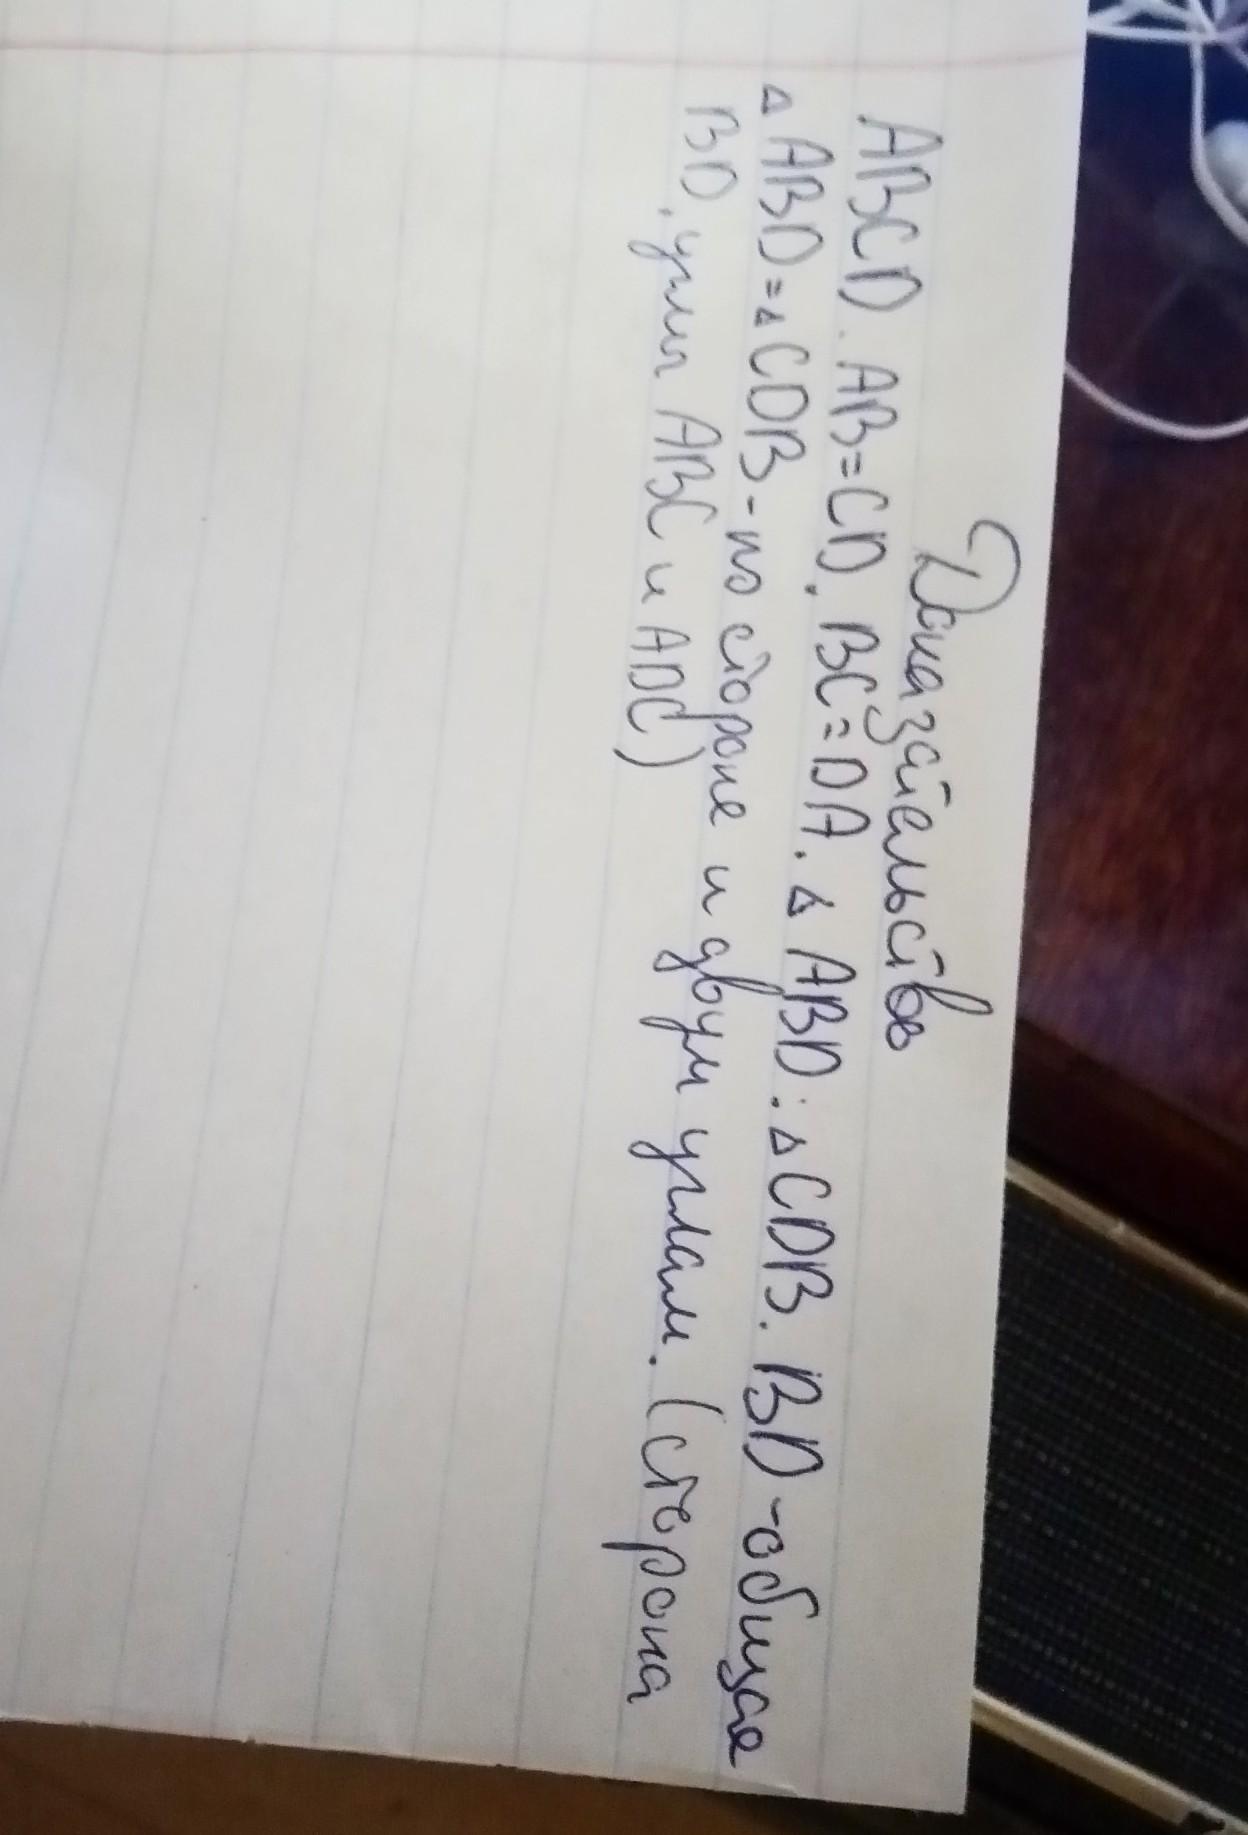 Доказательство
ABCD. AB=CD. BC=DA. △ABD: △CDB. BD-общая
△ABD=△CDB-по стороне и двум углам. (сторона
BD, углы ABC и ADC)